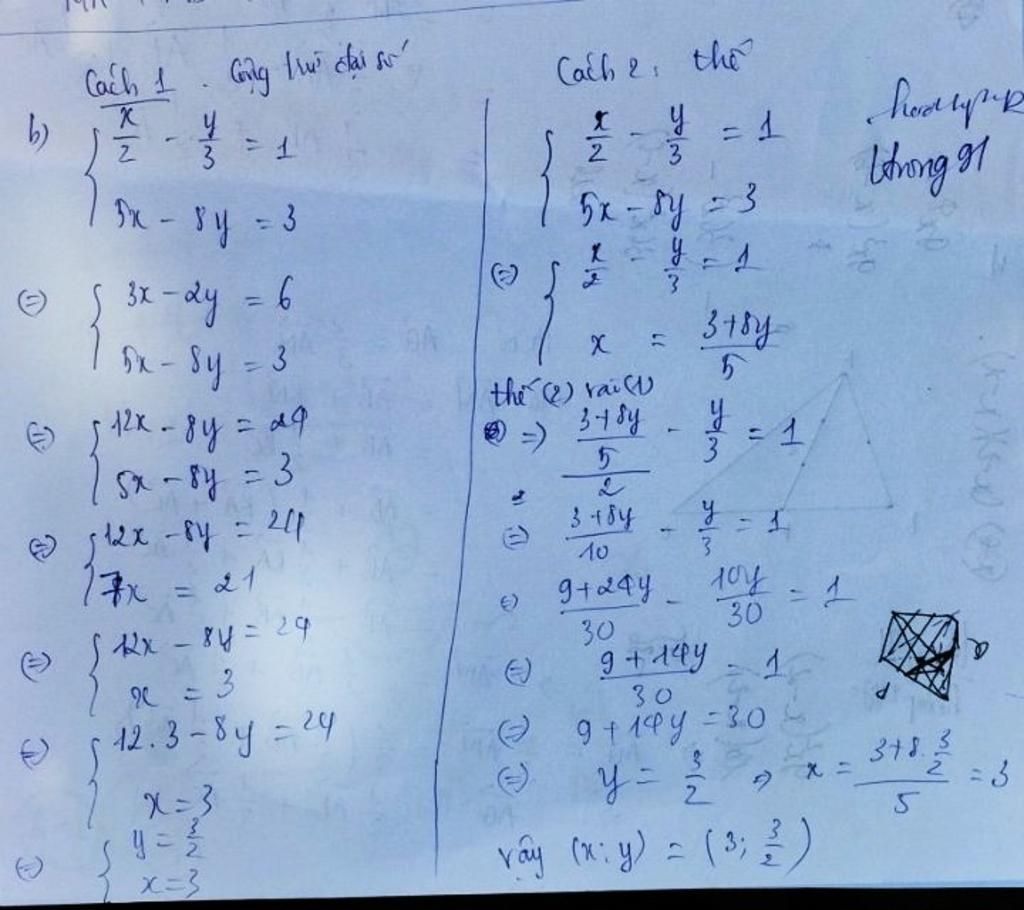 Cách 1. Cộng trừ đại số
b) { x/2 - y/3 = 1
5x - 8y = 3
(=) { 3x - 2y = 6
5x - 8y = 3
(=) { 12x - 8y = 24
5x - 8y = 3
(=) { 12x - 8y = 24
7x = 21
(=) { 12x - 8y = 24
x = 3
(=) { 12.3 - 8y = 24
x = 3
(=) { y = 3/2
x = 3
Cách 2: thế
{ x/2 - y/3 = 1
5x - 8y = 3
(=) { x/2 - y/3 = 1
x = (3+8y)/5
thế (2) vài (1)
=) ((3+8y)/5)/2 - y/3 = 1
(=) (3+8y)/10 - y/3 = 1
(=) (9+24y)/30 - 10y/30 = 1
(=) (9+14y)/30 = 1
(=) 9+14y = 30
(=) y = 3/2 => x = (3+8.3/2)/5 = 3
vậy (x; y) = (3; 3/2)